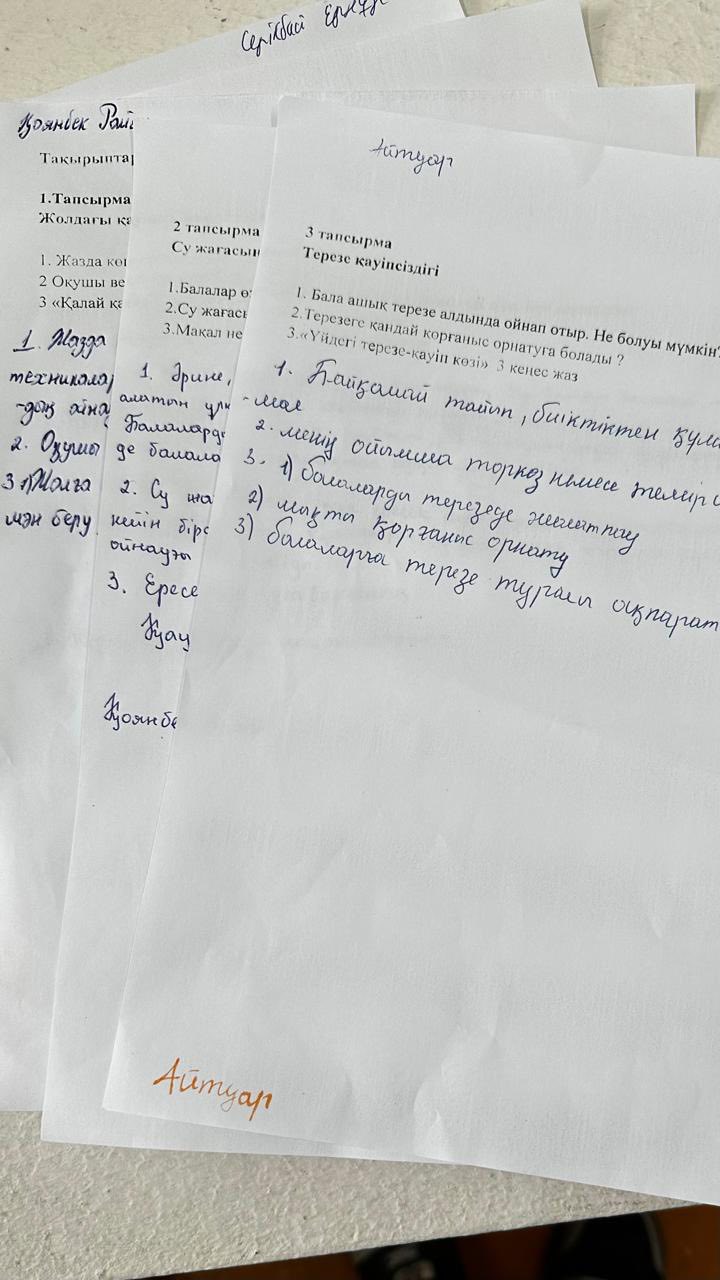 Серікбай
Қоянбек
Тақырыптар
1.Тапсырма
Жолдағы қа
1. Жазда көп
2 Оқушы ве
3 «Қалай қа
1. Жазда
техникалар
-дың айна
2. Оқушы
3 1) Жолға
мән беру
2 тапсырма
Су жағасын
1.Балалар ө
2.Су жағасы
3.Мақал не
1. Әрине,
алатын үлк
Балаларды
де балала
2. Су жа
кейін бірс
ойнауғы
3. Ересе
Қау
Қоянбе
Айтуар
3 тапсырма
Терезе қауіпсіздігі
1. Бала ашық терезе алдында ойнап отыр. Не болуы мүмкін?
2.Терезеге қандай қорғаныс орнатуға болады ?
3.«Үйдегі терезе-қауіп көзі» 3 кеңес жаз
1. Байқамай тайып, биіктіктен құла
-мае
2. менің ойымша торкөз немесе темір
3. 1) балаларды терезеде жалғатпау
2) мықты қорғаныс орнату
3) балаларға терезе туралы ақпарат
Айтуар